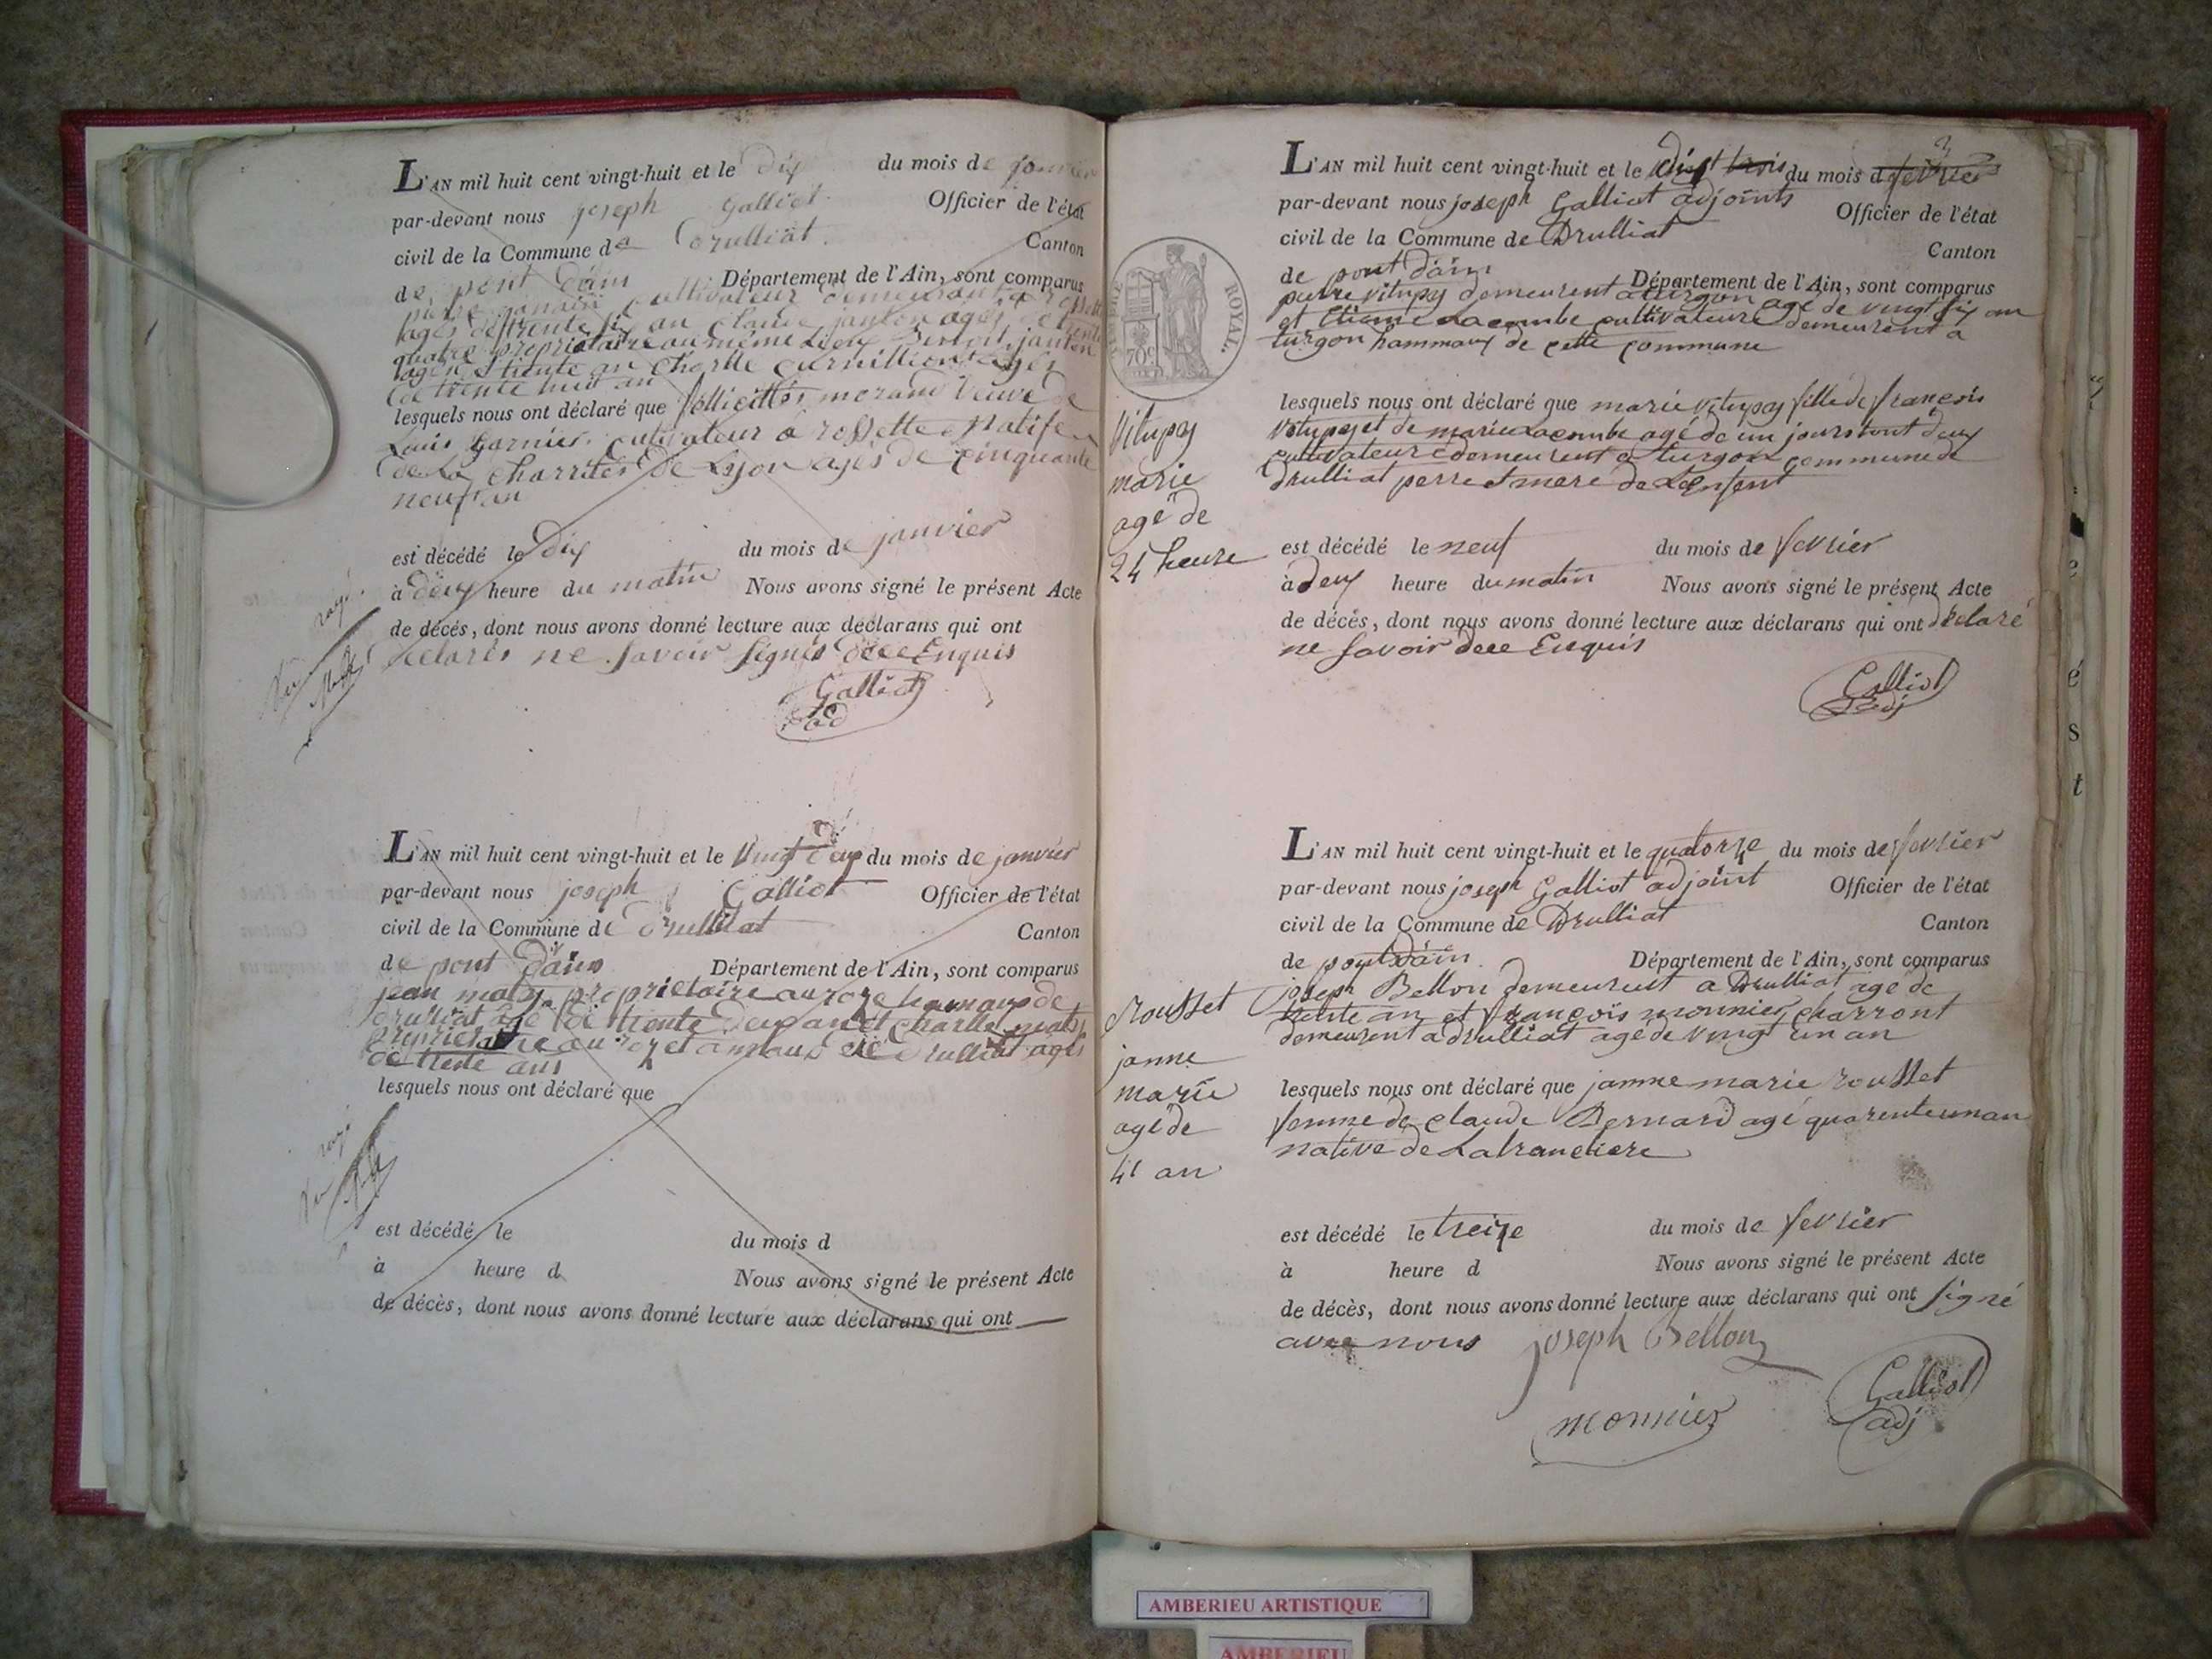 L'AN mil huit cent vingt-huit et le dix du mois de janvier
par-devant nous joseph Galliot Officier de l'état
civil de la Commune de Drulliat Canton
de pont dain Département de l'Ain, sont comparus
pierre cultivateur demeurant a
agés de trente an Claude janton agés de
quatre proprietaire au même janton
agés trente an Charlle
de trente huit an
lesquels nous ont déclaré que fellicittés morand veuve de
Louis Garnier cultivateur a rossette Natife
de La Charrites De Lyon agés de cinquante
neuf an
est décédé le dix du mois de janvier
à deux heure du matin Nous avons signé le présent Acte
de décés, dont nous avons donné lecture aux déclarans qui ont
declarés ne savoir signés Enquis
Galliot
ad
rayé
L'AN mil huit cent vingt-huit et le vingt du mois de janvier
par-devant nous joseph Galliot Officier de l'état
civil de la Commune de Drulliat Canton
de pont Dain Département de l'Ain, sont comparus
jean propriétaire au hamaux de
drulliat agé de trente an et Charlle
propriétaire au et amaux de Drulliat agés
de trente ans
lesquels nous ont déclaré que
rayé
est décédé le du mois d
à heure d Nous avons signé le présent Acte
de décès, dont nous avons donné lecture aux déclarans qui ont
L'AN mil huit cent vingt-huit et le du mois de fevrier
par-devant nous joseph Galliot adjoints Officier de l'état
civil de la Commune de Drulliat Canton
de pont dain Département de l'Ain, sont comparus
pierre vitupy demeurent a turgon agé de vingt six an
et Etienne Lacombe cultivateure demeurent a
turgon hammaux de cette commune
ROYAL.
70c
Vitupy
marie
agé de
24 heure
lesquels nous ont déclaré que marie vitupy fille de françois
vitupy et de marie Lacombe agé de un jours tout deux
cultivateure demeurent a turgon commune de
drulliat perre et mere de Lenfent
est décédé le neuf du mois de fevrier
à deux heure du matin Nous avons signé le présent Acte
de décés, dont nous avons donné lecture aux déclarans qui ont déclaré
ne savoir Enquis
Galliot
adj
L'AN mil huit cent vingt-huit et le quatorze du mois de fevrier
par-devant nous joseph Galliot adjoint Officier de l'état
civil de la Commune de Drulliat Canton
de pont dain Département de l'Ain, sont comparus
joseph Bellon demeurent a Drulliat agé de
trente an et françois monnier charront
demeurent a drulliat agé de vingt un an
Rousset
janne
marie
agé de
41 an
lesquels nous ont déclaré que janne marie rousset
femme de Claude Bernard agé quarente un an
native de Latraneliere
est décédé le treize du mois de fevrier
à heure d Nous avons signé le présent Acte
de décès, dont nous avons donné lecture aux déclarans qui ont signé
avec nous joseph Bellon
monnier
Galliot
adj
AMBERIEU ARTISTIQUE
AMBERIEU